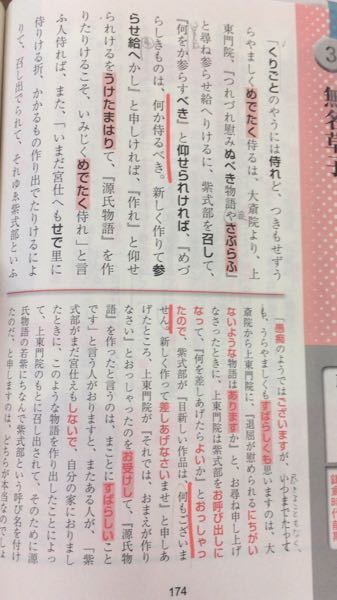 3
「くりごとのやうには侍れど、つきもせずう
らやましくめでたく侍るは、大斎院より、上
東門院、『つれづれ慰みぬべき物語やさぶらふ』
と尋ね参らせ給へりけるに、紫式部を召して、
『何をか参らすべき』と仰せられければ、『めづ
らしきものは、何か侍るべき。新しく作りて参
らせ給へかし』と申しければ、『作れ』と仰せ
られけるをうけたまはりて、『源氏物語』を作
りたりけるこそ、いみじくめでたく侍れ」と言
ふ人侍れば、また、「いまだ宮仕へもせで里に
侍りける折、かかるもの作り出でたりけるによ
りて、召し出でられて、それゆゑ紫式部といふ
「愚痴のようではございますが、いつまでたって
も、うらやましくもすばらしくも思いますのは、大
斎院から上東門院に、『退屈が慰められるにちがい
ないような物語はありますか』と、お尋ね申し上げ
なさったときに、上東門院は紫式部をお呼び出しに
なって、『何を差しあげたらよいか』とおっしゃっ
たので、紫式部が『目新しい作品は、何もございま
せん。新しく作って差しあげなさいませ』と申しあ
げたところ、上東門院が『それでは、おまえが作り
なさい』とおっしゃったのをお受けして、『源氏物
語』を作ったと言うのは、まことにすばらしいこと
です」と言う人がおりますと、またある人が、「紫
式部がまだ宮仕えもしないで、自分の家におりまし
たときに、このような物語を作り出したことによっ
て、上東門院のもとに召し出されて、そのために源
氏物語の若紫にちなんで紫式部という呼び名を付け
たのだ、と申しますのは、どちらが本当なのでしょ
174